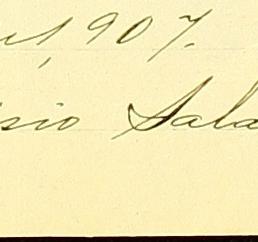 1907.
isio Sala